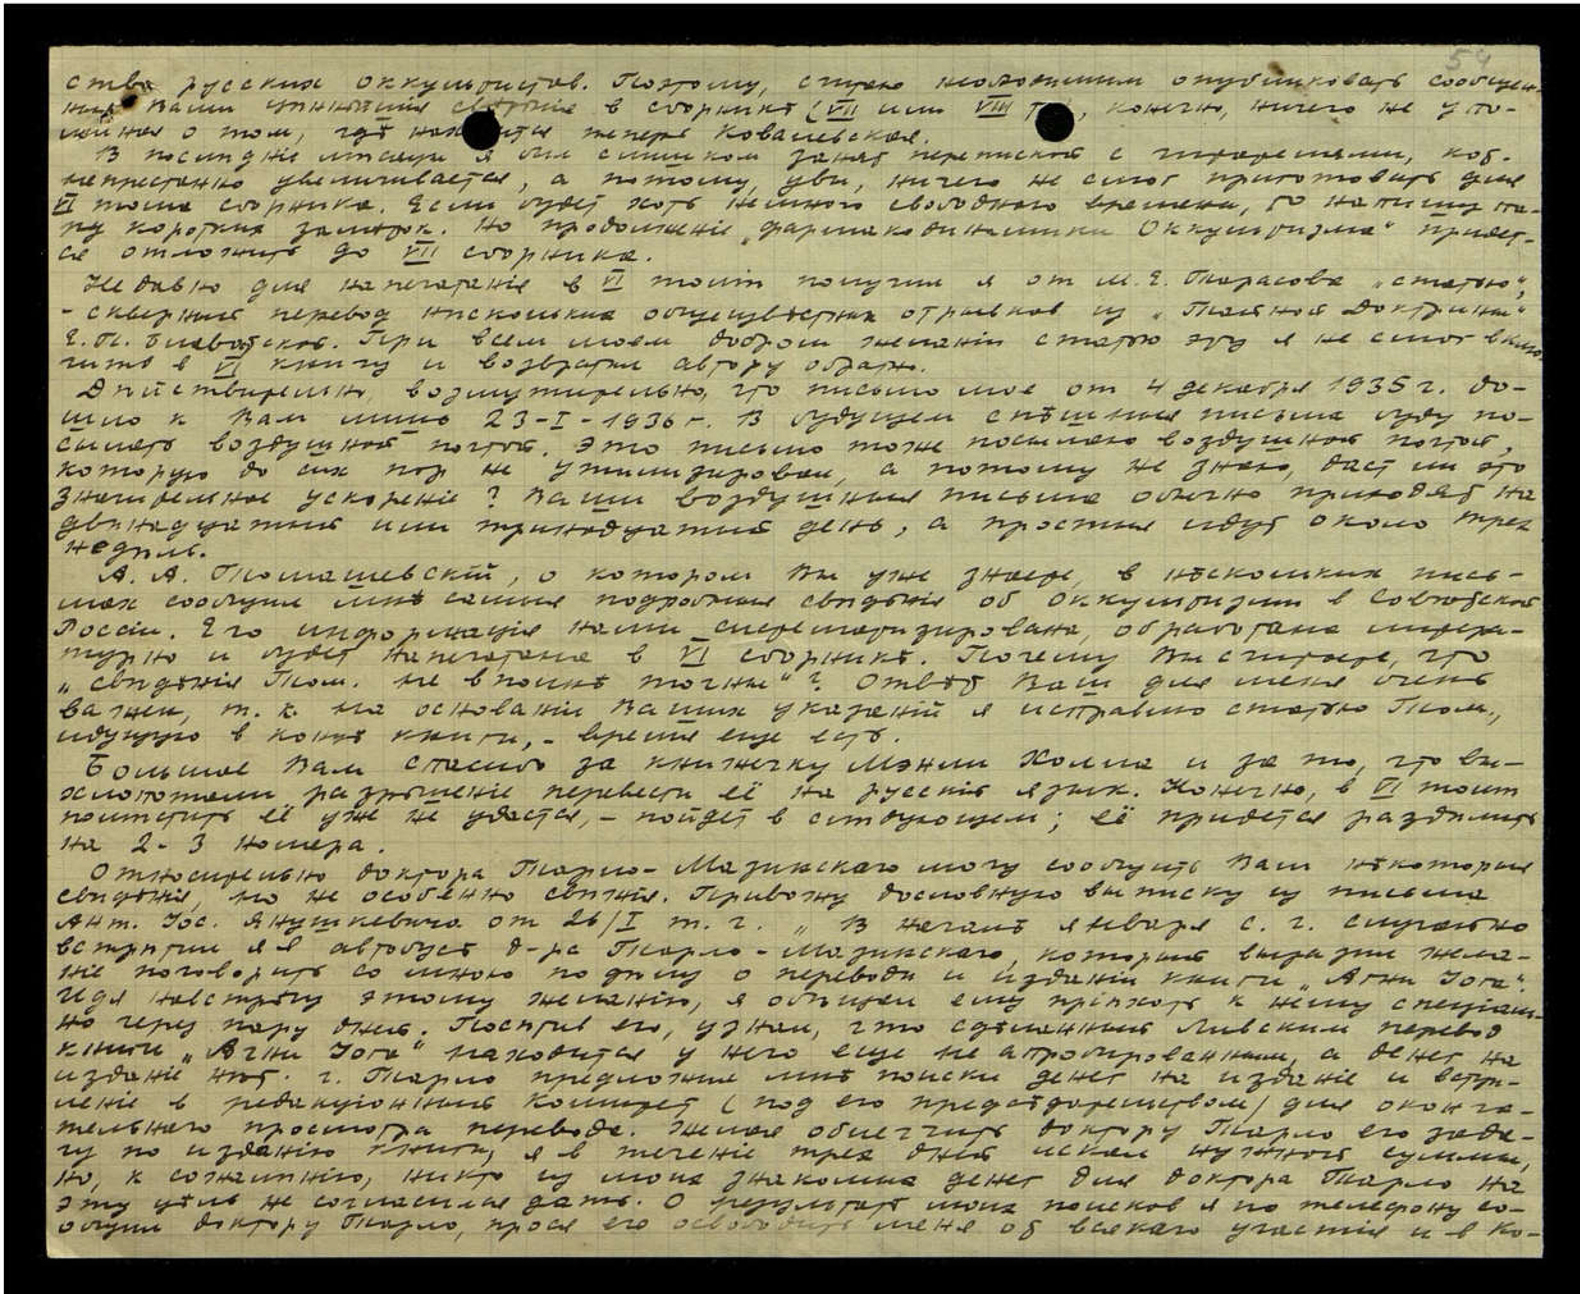 54
ства русских оккультистов. Поэтому, считаю необходимым опубликовать сообщен-
ныя Вами ценнѣйшія свѣдѣнія в сборникѣ (VII или VIII), конечно, ничего не упо-
миная о том, гдѣ находится теперь Ковалевская.
В послѣдніе мѣсяцы я был слишком занят перепиской с читателями, коя
непрестанно увеличивается, а потому, увы, ничего не смог приготовить для
VI тома сборника. Если будет хоть немного свободнаго времени, то напишу па-
ру коротких замѣток. Но продолженіе „Фармакодинамики Оккультизма" придет-
ся отложить до VII сборника.
Недавно для напечатанія в VI томѣ получил я от М. Е. Тарасова „статью",
- скверный перевод нѣскольких общеизвѣстных отрывков из „Тайной Доктрины"
Е. П. Блаватской. При всем моем добром желаніи статью эту я не смог вклю-
чить в VI книгу и возвратил автору обратно.
Дѣйствительно, возмутительно, что письмо мое от 4 декабря 1935 г. до-
шло к Вам лишь 23-I-1936 г. В будущем спѣшныя письма буду по-
сылать воздушной почтой. Это письмо тоже посылаю воздушной почтой,
которую до сих пор не утилизировал, а потому не знаю, даст ли это
значительное ускореніе? Ваши воздушныя письма обычно приходят на
двѣнадцатый или тринадцатый день, а простыя идут около трех
недѣль.
А. А. Томашевскій, о котором Вы уже знаете, в нѣскольких пись-
мах сообщил мнѣ самыя подробныя свѣдѣнія об оккультизмѣ в Совѣтской
Россіи. Его информація нами систематизирована, обработана литера-
турно и будет напечатана в VI сборникѣ. Почему Вы считаете, что
„свѣдѣнія Том. не вполнѣ точны"? Отвѣт Ваш для меня очень
важен, т. к. на основаніи Ваших указаній я исправлю статью Том.,
идущую в концѣ книги, - время еще есть.
Большое Вам спасибо за книжечку Мэнли Холла и за то, что вы-
хлопотали разрѣшеніе перевести её на русскій язык. Конечно, в VI томѣ
помѣстить её уже не удастся, - пойдет в слѣдующем; её придется раздѣлить
на 2-3 номера.
Относительно доктора Тарло-Мазинскаго могу сообщить Вам нѣкоторыя
свѣдѣнія, но не особенно свѣжія. Привожу дословную выписку из письма
Ант. Іос. Янушкевича от 26/I т. г. „В началѣ января с. г. случайно
встрѣтил я в автобусѣ д-ра Тарло-Мазинскаго, который выразил жела-
ніе поговорить со мною по дѣлу о переводѣ и изданіи книги „Агни Іога".
Идя навстрѣчу этому желанію, я обѣщал ему пріѣхать к нему спеціаль-
но через пару дней. Посѣтив его, узнал, что сдѣланный Ливским перевод
книги „Агни Іога" находится у него еще не апробированным, а денег на
изданіе нѣт. г. Тарло предложил мнѣ поиски денег на изданіе и вступ-
леніе в редакціонный комитет (под его предсѣдательством) для оконча-
тельнаго просмотра перевода. Желая облегчить доктору Тарло его зада-
чу по изданію книги, я в теченіе трех дней искал нужной суммы,
но, к сожалѣнію, никто из моих знакомых денег для доктора Тарло на
эту цѣль не согласился дать. О результатѣ моих поисков я по телефону со-
общил доктору Тарло, прося его освободить меня от всякаго участія и в ко-